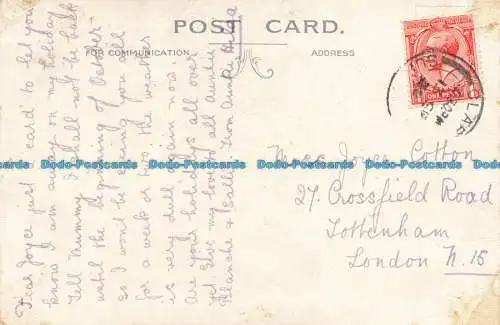 POST CARD.
FOR COMMUNICATION
ADDRESS
Dear Joyce just a card to let you
know I am away on my holiday
Tell Mummy I shall not be back
until the beginning of October
so I won't be seeing you all
for a week or two. the weather
is very dull again now.
Are your holidays all over
yet Give my love to all auntie
Blanche & Cyril from Auntie Hilda
ONE PENNY
Miss Joyce Cotton
27. Crossfield Road
Tottenham
London N.15
Dodo-Postcards Dodo-Postcards Dodo-Postcards Dodo-Postcards Dodo-Postcards Dodo-Postcards
Dodo-Postcards Dodo-Postcards Dodo-Postcards Dodo-Postcards Dodo-Postcards Dodo-Postcards